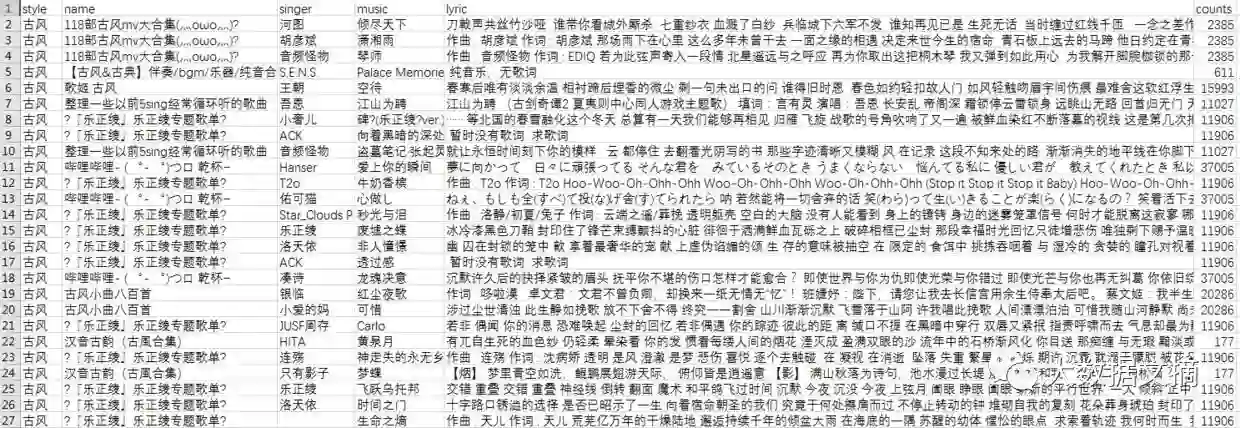 1 style name singer music lyric counts
2 古风 118部古风mv大合集(,,,,οωο,,,,)? 河图 倾尽天下 刀戟声共丝竹沙哑 谁带你看城外厮杀 七重纱衣 血溅了白纱 兵临城下六军不发 谁知再见已是 生死无话 当时缠过红线千匝 一念之差作 2385
3 古风 118部古风mv大合集(,,,,οωο,,,,)? 胡彦斌 潇湘雨 作曲 胡彦斌 作词 : 胡彦斌 那场雨下在心里 这么多年未曾干去 一面之缘的相遇 决定来世今生的宿命 青石板上远去的马蹄 他日约定在青 2385
4 古风 118部古风mv大合集(,,,,οωο,,,,)? 音频怪物 琴师 作曲 音频怪物 作词 : EDIQ 若为此弦声寄入一段情 北星遥远与之呼应 再为你取出这把桐木琴 我又弹到如此用心 为我解开脚腕枷锁的那 2385
5 古风 【古风&古典】伴奏/bgm/乐器/纯音合 S.E.N.S Palace Memorie 纯音乐，无歌词 611
6 古风 歌姬 古风 王朝 空待 春寨后唯有淡淡余温 相衬蹄后埋香的微尘 剩一句未出口的问 谁得旧时恩 春色如约轻扣故人门 如风轻触吻眉字间伤痕 最难舍这软红浮生 15993
7 古风 整理一些以前5sing经常循环听的歌曲 吾恩 江山为聘 江山为聘 （古剑奇谭2 夏夷则中心同人游戏主题歌） 填词：言有灵 演唱：吾恩 长安乱 帝阁深 霜锁停云雪锁身 远眺山无路 回首归无门 天 11027
8 古风 ?『乐正绫』乐正绫专题歌单? 小奢儿 碑?(乐正绫?ver.) ……等北国的春雪融化这个冬天 总算有一天我们能够再相见 归雁 飞旋 战歌的号角吹响了又一遍 被鲜血染红不断落幕的视线 这是第几次拒 11906
9 古风 ?『乐正绫』乐正绫专题歌单? ACK 向着黑暗的深处 暂时没有歌词 求歌词 11906
10 古风 整理一些以前5sing经常循环听的歌曲 音频怪物 盗墓笔记·张起灵 就让永恒时间刻下你的模样 云 都停住 去翻着光阴写的书 那些字迹清晰又模糊 风 在记录 这段不知来处的路 渐渐消失的地平线在你脚下 11027
11 古风 哔哩哔哩-(゜-゜)つロ 乾杯~ Hanser 爱上你的瞬间 夢に向かって 日々に頑張ってる そんな君を みているそのとき うまくならない 悩んてる私に 優しい君が 教えてくれたとき 私は 37005
12 古风 ?『乐正绫』乐正绫专题歌单? T2o 牛奶香槟 作曲 : T2o 作词 : T2o Hoo-Woo-Oh-Ohh-Ohh Woo-Oh-Ohh-Ohh (Stop it Stop it Stop it Baby) Hoo-Woo-Oh-Ohh-O 11906
13 古风 ?『乐正绫』乐正绫专题歌单? 佑可猫 心做し ねぇ、もしも全(すべ)て投(な)げ舍(す)てられたら 呐 若然能将一切舍弃的话 笑(わら)って生(い)きることが楽(らく)になるの？ 笑着活下去 11906
14 古风 ?『乐正绫』乐正绫专题歌单? Star_Clouds P 秒光与泪 作曲 : 洛静/初夏/兔子 作词 : 云端之遥/葬挽 透明躯壳 空白的大脑 没有人能看到 身上的镣铐 身边的迷雾笼罩信号 何时才能脱离这寂寥 哪 11906
15 古风 ?『乐正绫』乐正绫专题歌单? 乐正绫 废墟之蝶 冰冷漆黑色刀鞘 封印住了锋芒束缚颤抖的心脏 徘徊于洒满鲜血瓦砾之上 破碎相框已尘封 那段幸福时光回忆只徒增悲伤 唯独剩下赐予温暖 11906
16 古风 ?『乐正绫』乐正绫专题歌单? 洛天依 非人憧憬 幽 囚在封锁的笼中 献 享着最奢华的宠 献 上虚伪谄媚的颂 生 存的意味被抽空 在 限定的 食饵中 挑拣吞咽着 与 湿冷的 贪婪的 瞳孔对视着 11906
17 古风 ?『乐正绫』乐正绫专题歌单? ACK 透过感 暂时没有歌词 求歌词 11906
18 古风 哔哩哔哩-(゜-゜)つロ 乾杯~ 凑诗 龙魂决意 沉默许久后的抉择紧皱的眉头 抚平你不堪的伤口怎样才能愈合？ 即使世界与你为仇即使光荣与你错过 即使光芒与你也再无纠葛 你依旧纟 37005
19 古风 古风小曲八百首 银临 红尘夜歌 作词 哆啦漠 卓文君：文君不曾负卿，却换来一纸无情无“忆”！ 班婕妤：陛下，请您让我去长信宫用余生侍奉太后吧。 蔡文姬：我半生 20286
20 古风 古风小曲八百首 小爱的妈 可惜 涉过尘世清浊 此生静如挽歌 放不下舍不得 终究一一割舍 山川渐渐沉默 飞雪落于山阿 许我唱此挽歌 人间漂漂泊泊 可惜我随山河静默 尚 20286
21 古风 ?『乐正绫』乐正绫专题歌单? JUSF周存 Carlo 若非 偶闻 你的消息 恐难唤起 尘封的回忆 若非偶遇 你的踪迹 彼此的距离 缄口不提 在黑暗中穿行 双唇又紧抿 指责呼啸而去 气息却最为 11906
22 古风 汉音古韵（古風合集） HITA 黄泉月 有兀自生死的血色纱 仍轻柔 晕染着 你的发 惯看每缕人间的烟花 湮灭成 盈满双眼的沙 流年中的石桥渐风化 你目送 那痴缠与无瑕 黯淡成 177
23 古风 ?『乐正绫』乐正绫专题歌单? 连殇 神走失的永无乡 作曲 连殇 作词 : 沈病娇 透明 是风 澄澈 是梦 悲伤 喜悦 逐个去触碰 在 凝视 在消逝 坠落 失重 繁星 11906
24 古风 汉音古韵（古風合集） 只有影子 梦蝶 【烟】 梦里青空如洗，鲲鹏展翅游天际、 俯仰皆是逍遥意 【影】 满山秋落为诗句， 池水漫过长堤 177
25 古风 ?『乐正绫』乐正绫专题歌单? 乐正绫 飞跃乌托邦 交错 重叠 交错 重叠 神经线 倒转 翻面 魔术 和平鸽飞过时间 沉默 今夜 沉没 今夜 上弦月 阖眼 睁眼 阖眼 11906
26 古风 ?『乐正绫』乐正绫专题歌单? 洛天依 时间之门 十字路口锈迹的选择 是否已昭示了一生 向着宿命朝圣的我们 究竟于何处擦肩而过 不停止转动的钟 堆砌自我的复刻 花朵葬身琥珀 封印了 11906
27 古风 ?『乐正绫』乐正绫专题歌单? 生命之熵 作曲 : 天儿 作词 : 天儿 荒芜亿万年的干燥陆地 邂逅持续千年的倾盆大雨 在海底的一隅 苏醒的幼体 惺忪的眼点 求索着轨迹 我何时而生 11906